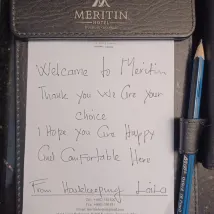 MERITIN
HOTEL
Welcome to Meritin
Thank you We are your
choice
I Hope you are Happy
and Comfortable Here
From Housekeeping Laila